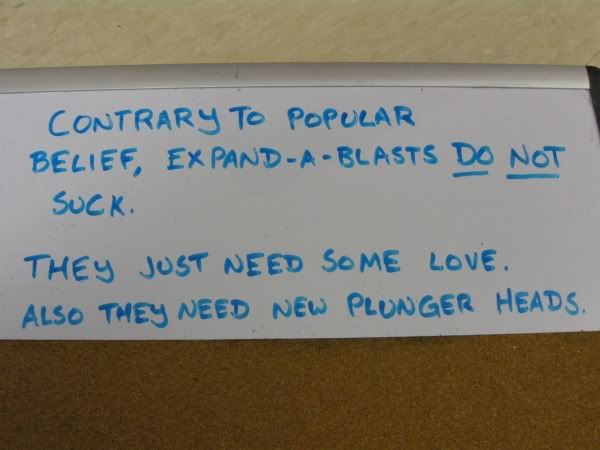 CONTRARY TO POPULAR
BELIEF, EXPAND-A-BLASTS DO NOT
SUCK.
THEY JUST NEED SOME LOVE.
ALSO THEY NEED NEW PLUNGER HEADS.